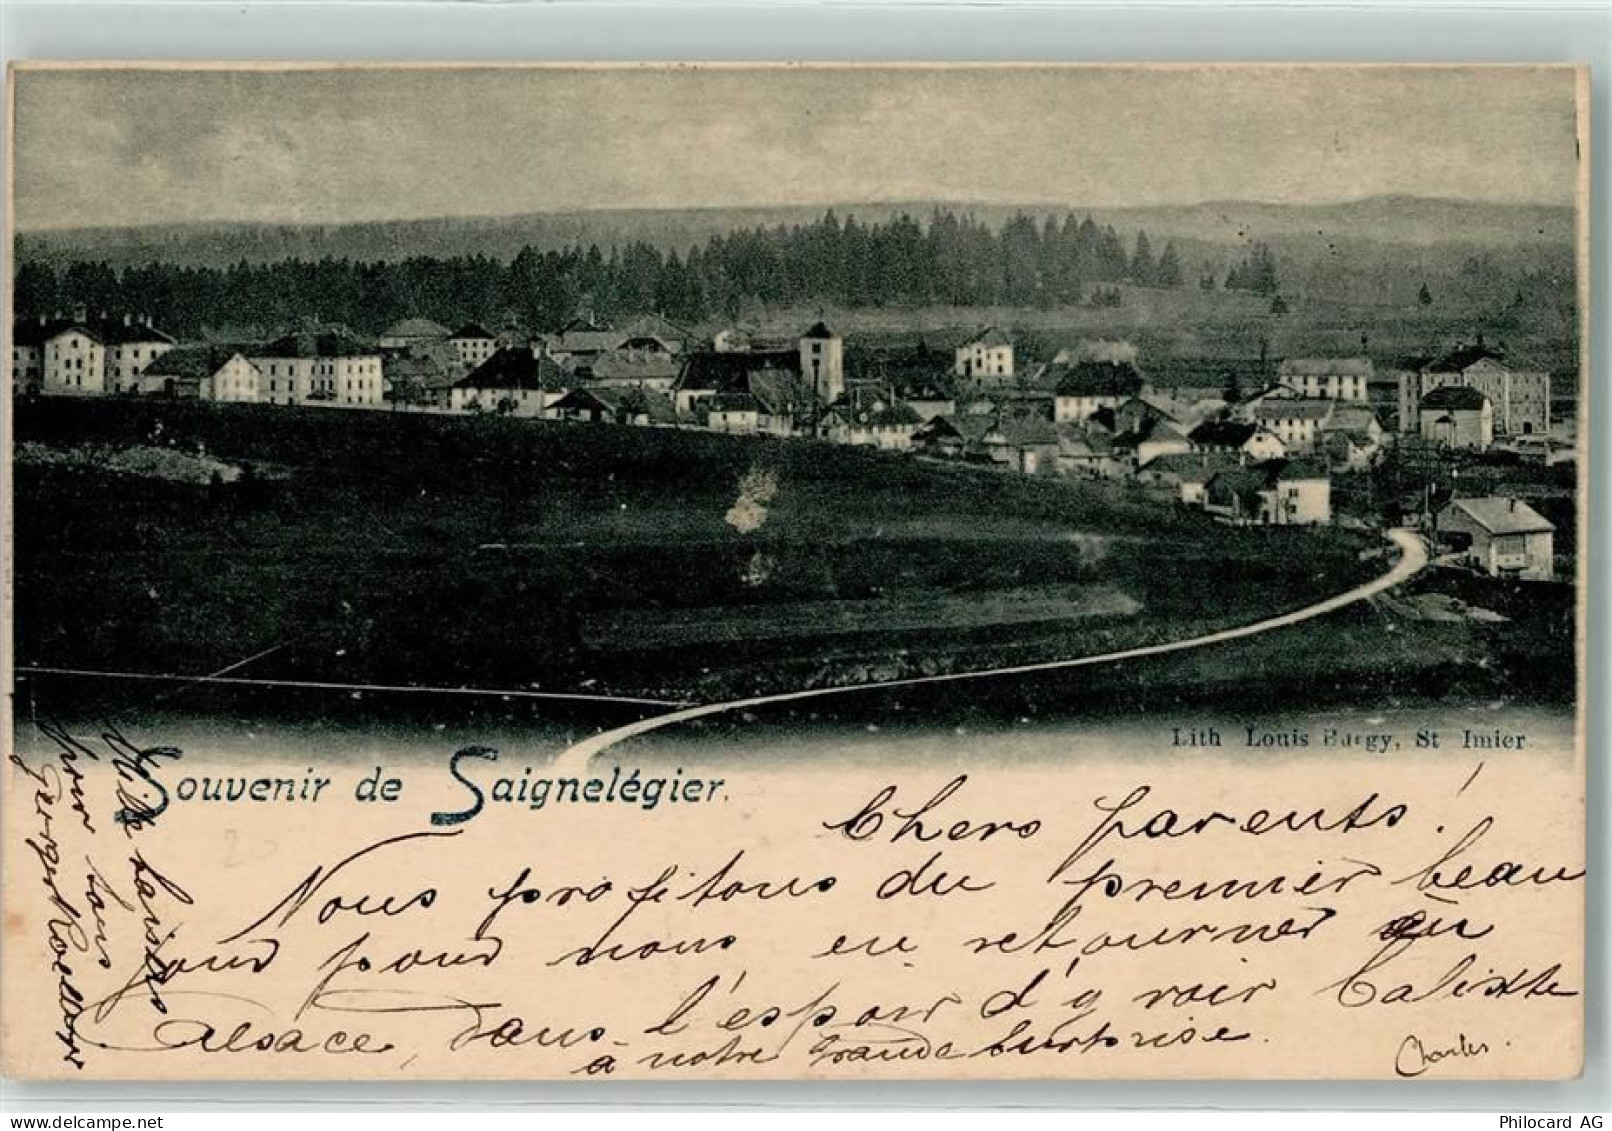 Lith Louis Burgy, St Imier.
Souvenir de Saignelégier.
Chers parents!
Nous profitons du premier beau
jour pour nous en retourner en
Alsace, dans l'espoir d'y voir Calixte
à notre grande surprise.
Charles.
Mille baisers
pour tous